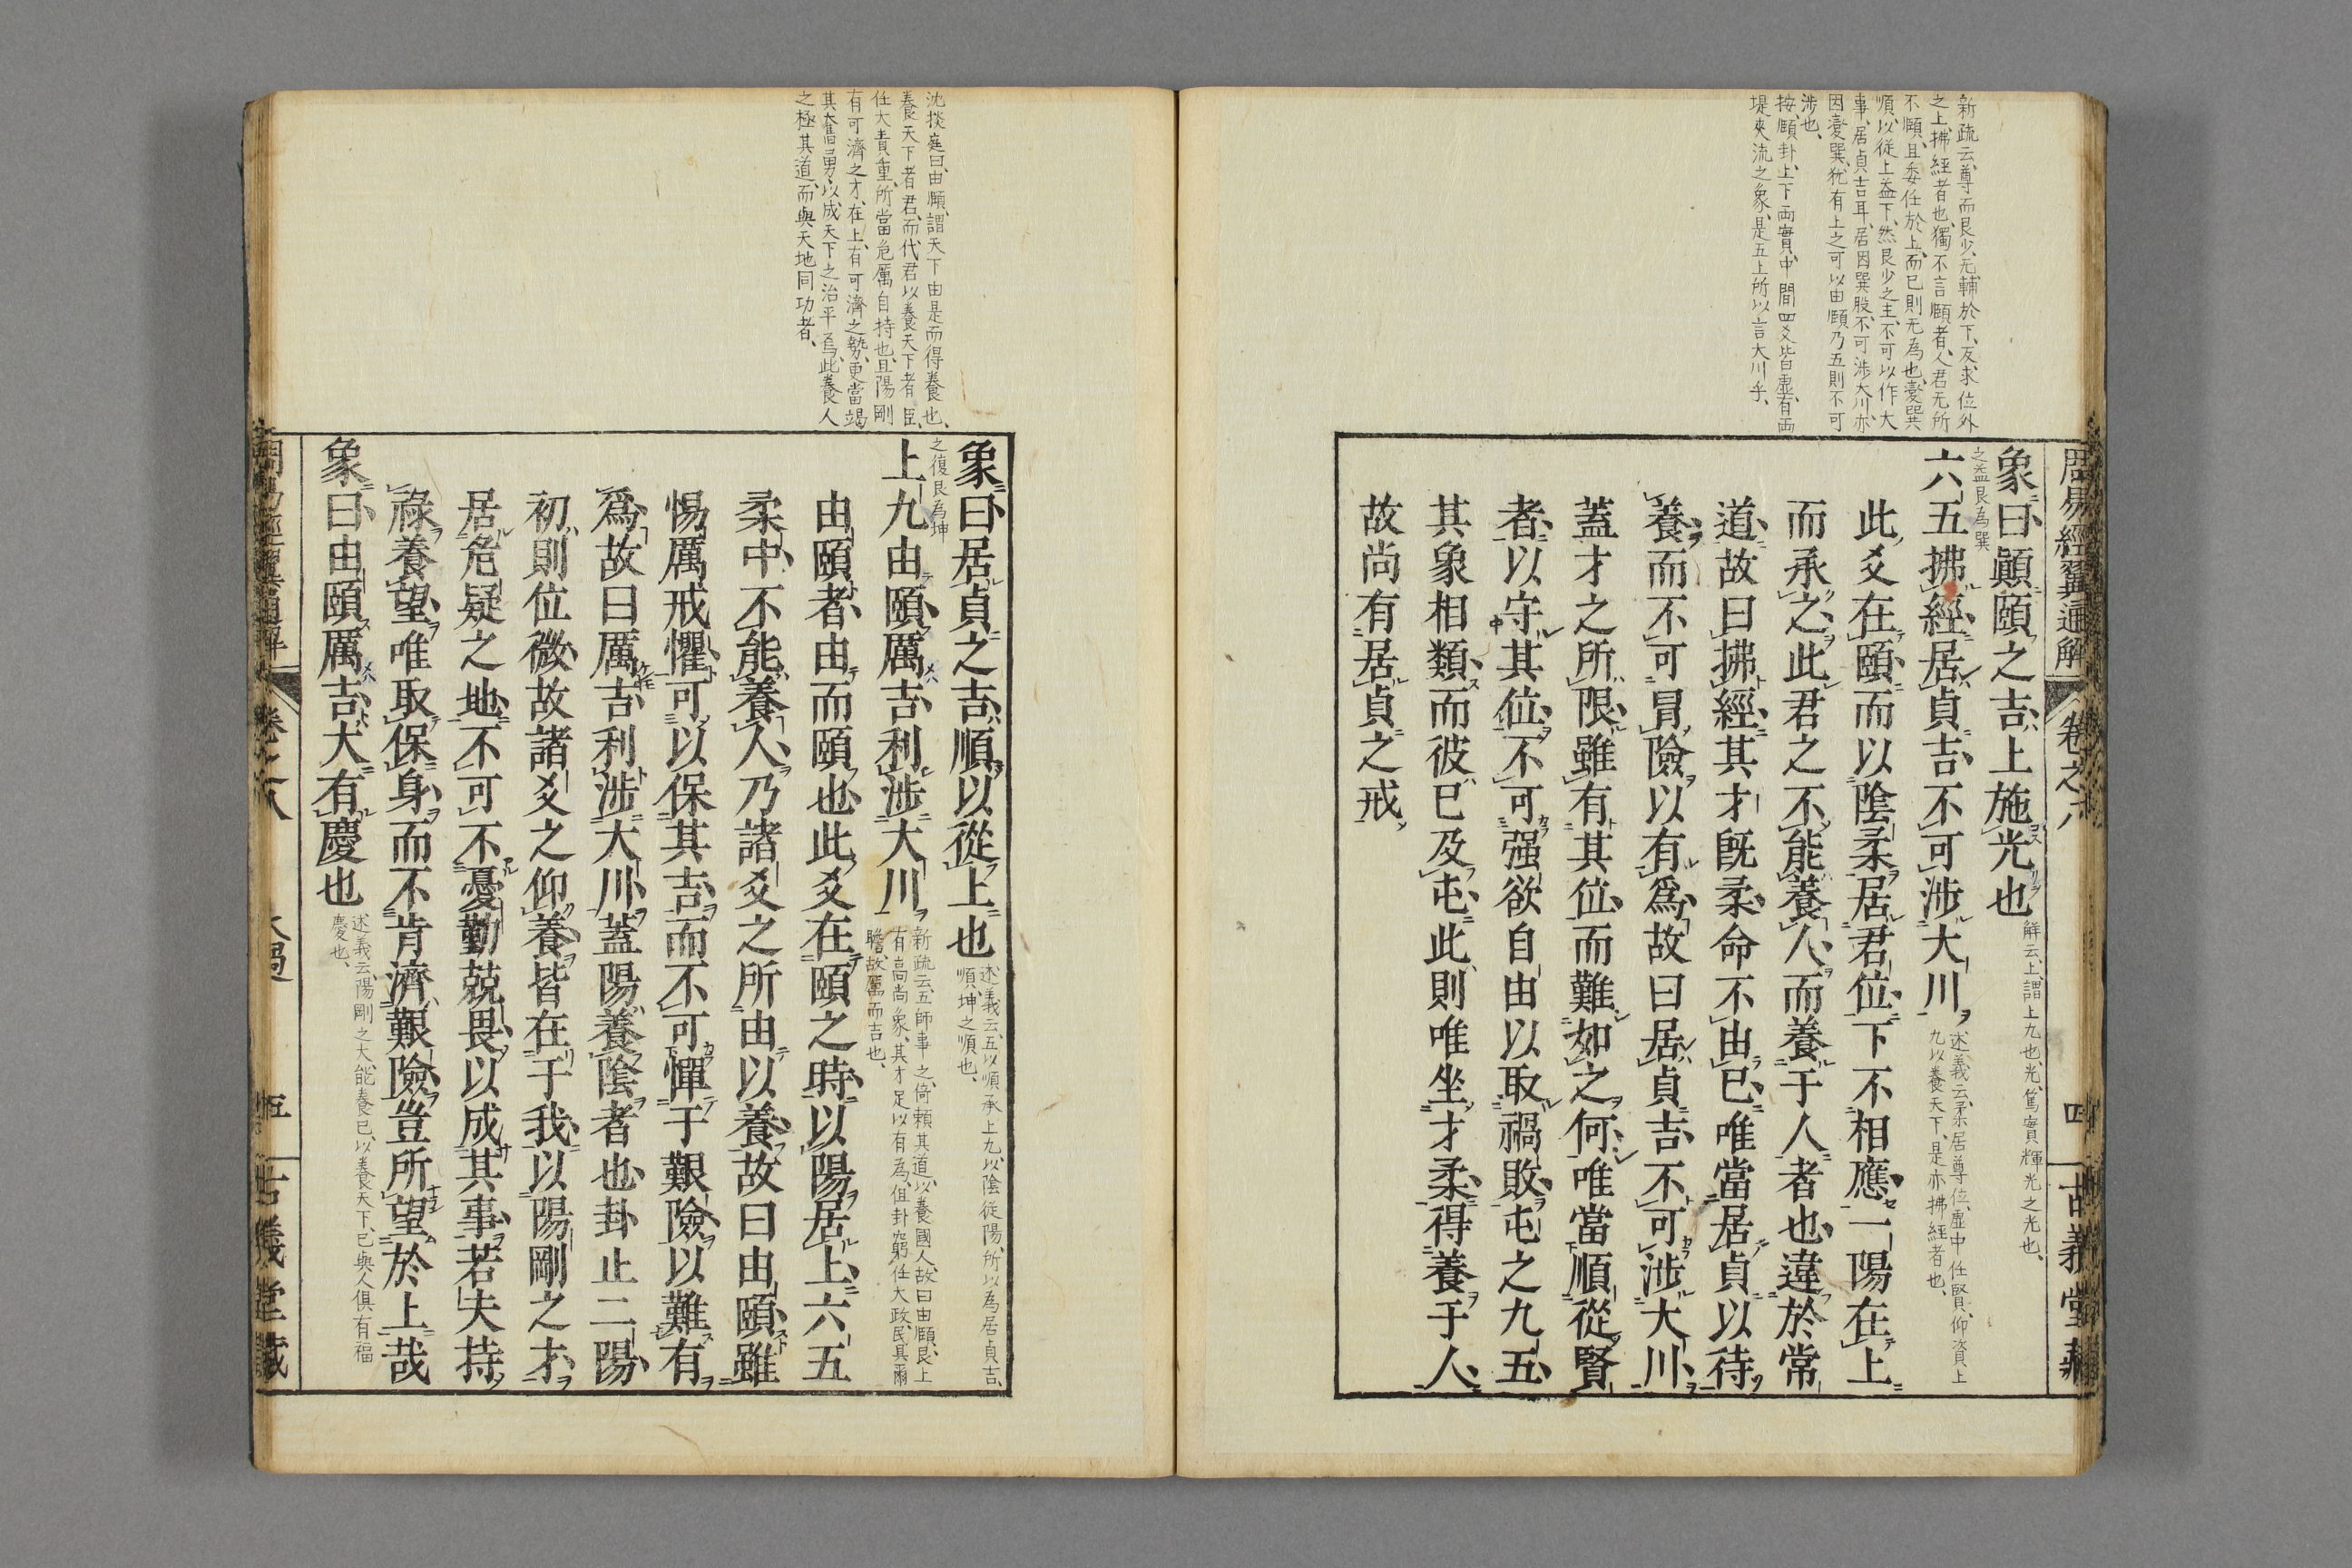 新疏云、尊而艮少、无輔於下、反求位外
之上、拂經者也、獨不言頤者、人君无所
不頤、且委任於上、而已則无為也、憂巽
順、以從上益下、然艮少之主、不可以作大
事、居貞吉耳、居因巽股、不可涉大川、亦
因憂巽、犹有上之可以由頤、乃五則不可
涉也、
按、頤卦上下両實、中間四爻皆虛、有両
堤夾流之象、是五上所以言大川乎、
周易經翼通解
卷之八
四
古義堂藏
象曰顚頤之吉上施光也
解云、上、謂上九也、光、篤實輝光之光也、
之益艮為巽
六五拂經居貞吉不可涉大川
述義云、柔居尊位、虛中任賢、仰資上
九以養天下、是亦拂經者也、
此爻在頤而以陰柔居君位下不相應一陽在上
而承之此君之不能養人而養于人者也違於常
道故曰拂經其才旣柔命不由己唯當居貞以待
養而不可冒險以有爲故曰居貞吉不可涉大川
蓋才之所限雖有其位而難如之何唯當順從賢
者以守其位不可强欲自由以取禍敗屯之九五
其象相類而彼已及屯此則唯坐才柔得養于人
故尚有居貞之戒
沈掞庭曰、由頤、謂天下由是而得養也、
養天下者君、而代君以養天下者臣、
任大責重、所當危厲自持也、且陽剛
有可濟之才、在上有可濟之勢、更當竭
其奮勇、以成天下之治平焉、此養人
之極其道、而與天地同功者、
象曰居貞之吉順以從上也
述義云、五以順承上九、以陰從陽、所以為居貞吉、
順、坤之順也、
之復艮為坤
上九由頤厲吉利涉大川
新疏云、五師事之、倚賴其道、以養國人、故曰由頤、艮上
有高尚象、其才足以有為、但卦窮、任大政、民具爾
瞻、故厲而吉也、
由頤者由而頤也此爻在頤之時以陽居上六五
柔中不能養人乃諸爻之所由以養故曰由頤雖
惕厲戒懼可以保其吉而不可憚于艱險以難有
爲故曰厲吉利涉大川蓋陽養陰者也卦止二陽
初則位微故諸爻之仰養皆在于我以陽剛之才
居危疑之地不可不憂勤兢畏以成其事若夫持
祿養望唯取保身而不肯濟艱險豈所望於上哉
象曰由頤厲吉大有慶也
述義云、陽剛之大、能養己、以養天下、己與人俱有福
慶也、
周易經翼通解
卷之八
大過
五
古義堂藏